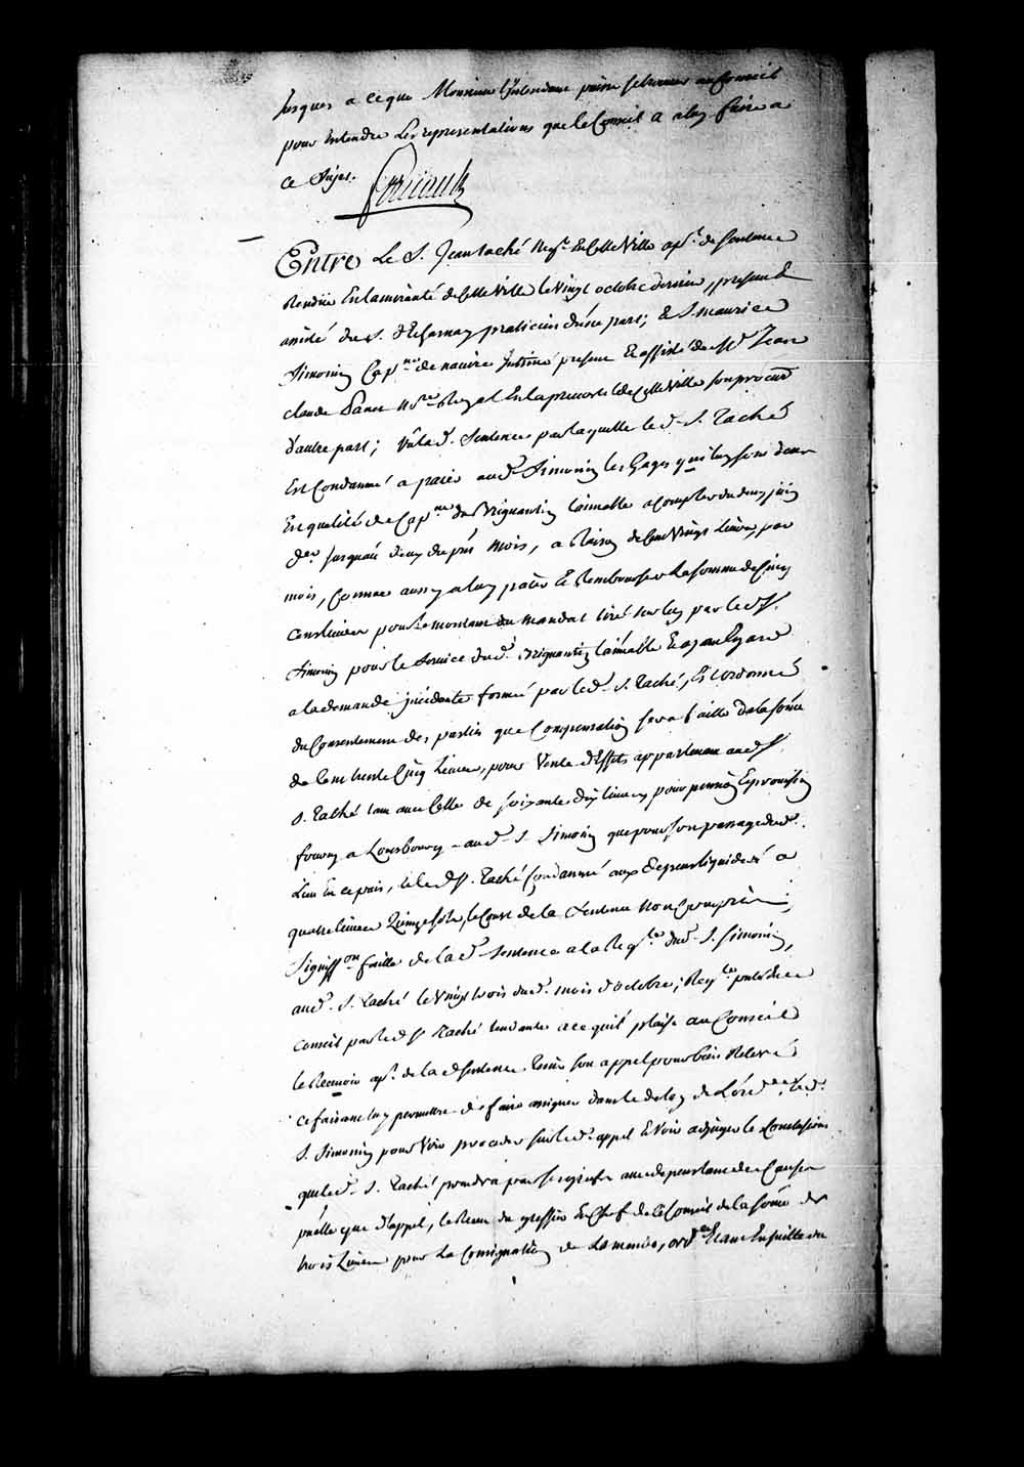 Jusques a ce que Monsieur L'Intendant puisse se trouver au Conseil
pour Entendre Les representations que le Conseil a a luy faire a
ce Sujet.
Entre Le S. Jean taché Neg.t En Cette Ville ap.t de sentence
Rendüe En lamirauté de Cette Ville le vingt octobre dernier, present &
assisté du S. praticien d'une part; & S. maurice
Simonin Cap.ne de navire Intimé present & assisté de M.e Jean
claude Panet No.re Royal En la prevosté de Cette Ville son procur
d'autre part; Vû la d. Sentence par laquelle led. S. Taché
Est Condamné a paier aud. Simonin les Gages qui luy sont deus
En qualité de Cap.ne du Brigantin Laimable a Compter du deux juin
d.er jusquau deux du pnt mois, a Raison de Cent Vingt Livres par
mois, Comme aussy a luy paier & Rembourser La somme de Cinq
Cens livres pour le montant du mandat tiré sur luy par led. S.
Simonin pour le service dud. Brigantin laimable & ayant Egard
a la demande jncidente formée par led. S. Taché, Est ordonné
du Consentement des parties que Compensation sera faitte de la som̃e
de Cent trente Cinq Livres, pour Vente d'Effets appartenans aud.
S. Taché tant avec Celle de soixante dix livres pour pension &
fourny a Louisbourg aud. S. Simonin que pour son passage dud.
Lieu En ce païs, & led. S. Taché Condamné aux depens liquidés a
quatre livres Quinze sols, le Cout de la Sentence non Compris;
Signiff.on faitte de la d. Sentence a la Req.te dud. S. Simonin,
aud. S. Taché le Vingt trois dud. mois d'octobre; Req.te en ce
Conseil par led. S. Taché tendante a ce quil plaise au Conseil
le Recevoir ap.t de la d. Sentence tenir son appel pour bien Relevé
ce faisant luy permettre de faire assigner dans le delay de L'ord.ce led.
S. Simonin pour Voir proceder sur led. appel & Voir adjuger les Conclusions
que led. S. Taché prendra
que d'appel, le Recu du greffier En Chef de ce Conseil de la som̃e de
trois Livres pour La Consignation de Lamande, ord.ce Etant Ensuitte du